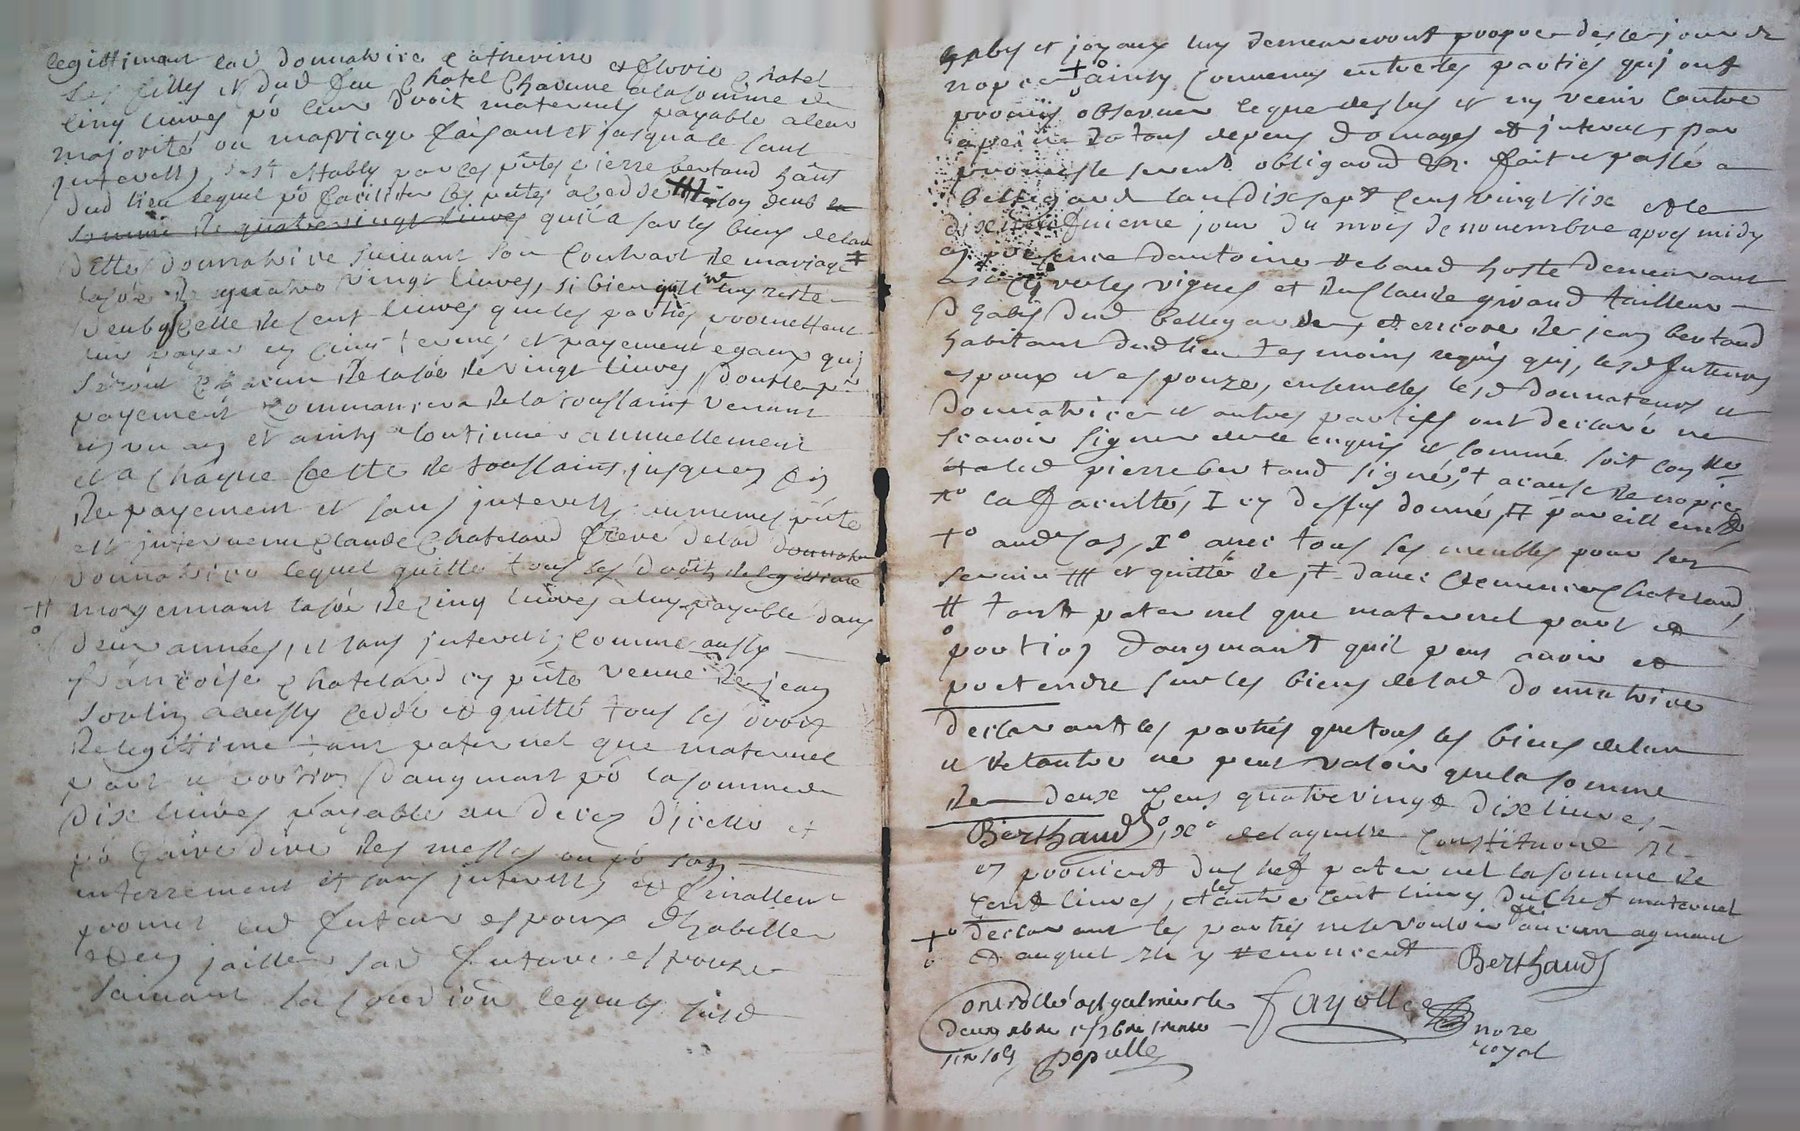 legittimant lad donnatrice Catherine et Clorie Chatel
ses filles et dud feu Chatel Chacune a la somme de
cinq livres po leur droit maternels payable a leur
majorité ou marriage faisant et jusqua le sans
interests, s'est estably par ces pntes pierre bertaud hant
dud lieu lequel po faciliter les pntes a ced de ## loy deub la
somme de quatre vingt livres quil a sur les biens de lad
ditte donnatrice suivant son Contract de mariage ⧧
la soe de quatre vingt livres, si bien quil ne luy reste
deub celle de cent livres que les parties promettent
luy payer en cinq termes et payement egaux qui
seront Chacun de la soe de vingt livres, dont le pr
payement Commancera de la toussaint venant
en un an et ainsy Continuer annuellement
et a Chaque feste de toussaint jusques fin
de payement et sans interests, en memes pnte
est intervenu Claude Chateland frere de lad donnatr
donnatrice lequel quitte tous les droits de legittime
⧺ moyennant la soe de cinq livres a luy payable dans
o deux années, et sans interests, Comme aussy
francoise Chateland cy pnte veuve de jean
Soulin a aussy cedé et quitté tous les droits
de legittime tant paternel que maternel
part et portion d'augmant po la somme de
dix livres payable au deces dicelle et
po faire dire des messes ou po son
enterrement et sans interests, et finallemt
promet led futeur espoux dhabiller
et en jailler sad future espouze
suivant sa Condiōn lequels juste
habs et joyaux luy demeureront propre des le jour de
nopce + ainsy Convenus entre les parties qui ont
promis observer le que dessus et ny venir Contre
a peine de tous depens domages et interests par
promesse serment obligaōn &c. fait et passé a
bellegarde lan dix sept Cens vingt six et le
dix huitieme jour du mois de novembre apres midy
en presence dantoine rebaud hoste demeurant
a verles vignes et de Claude giraud tailleur
dhabis dud bellegarde et encore de jean bertaud
habitant dud lieu tesmoins requis qui, lesd futeurs
espoux et espouze, ensembles lesd donnateurs et
donnatrice et autres parties ont declaré ne
scavoir signer de ce enquis et sommé soit Con lle
et aled pierre bertaud signé, † a cause de nopce
⧧o la faculté, I cy dessus donné, ⧺ pareillement
+o aud cas, Xo avec tous les meubles pour sen
servir ⧻ et quitté de, ‡ davec Clemence Chateland,
⧺ tant paternel que maternel part et
o portion daugmant quil peut avoir et
pretendre sur les biens de lad donnatrice
declarant les parties que tous les biens de lun
et de lautre ne peut valoir que la somme
de deux Cens quatre vingt dix livres
Berthaud, xo de laquelle Constitution il
en provient du chef paternel la somme de
Cent livres, et les autre cent livres du Chef maternel
+o declarant les parties ne se vouloir faire aucun augment
o et auquel ils y renoncent Berthaud
Controllé a St galmier le fayolle
deux xbre 1726 Reçu trente nore
six sols populle royal